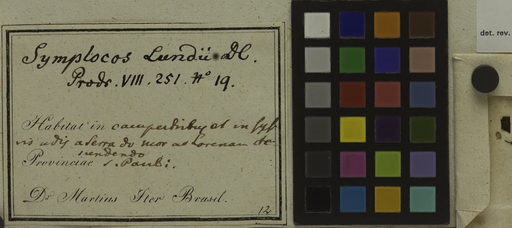 Symplocos Lundii DC.
Prodr. VIII. 251. No 19.
Habitat in campestribus et in syl-
vis udis a Serra do Mor ad Lorenam de-
scendendo
Provinciae S. Pauli.
Dr Martius Iter Brasil.
12
det. rev.